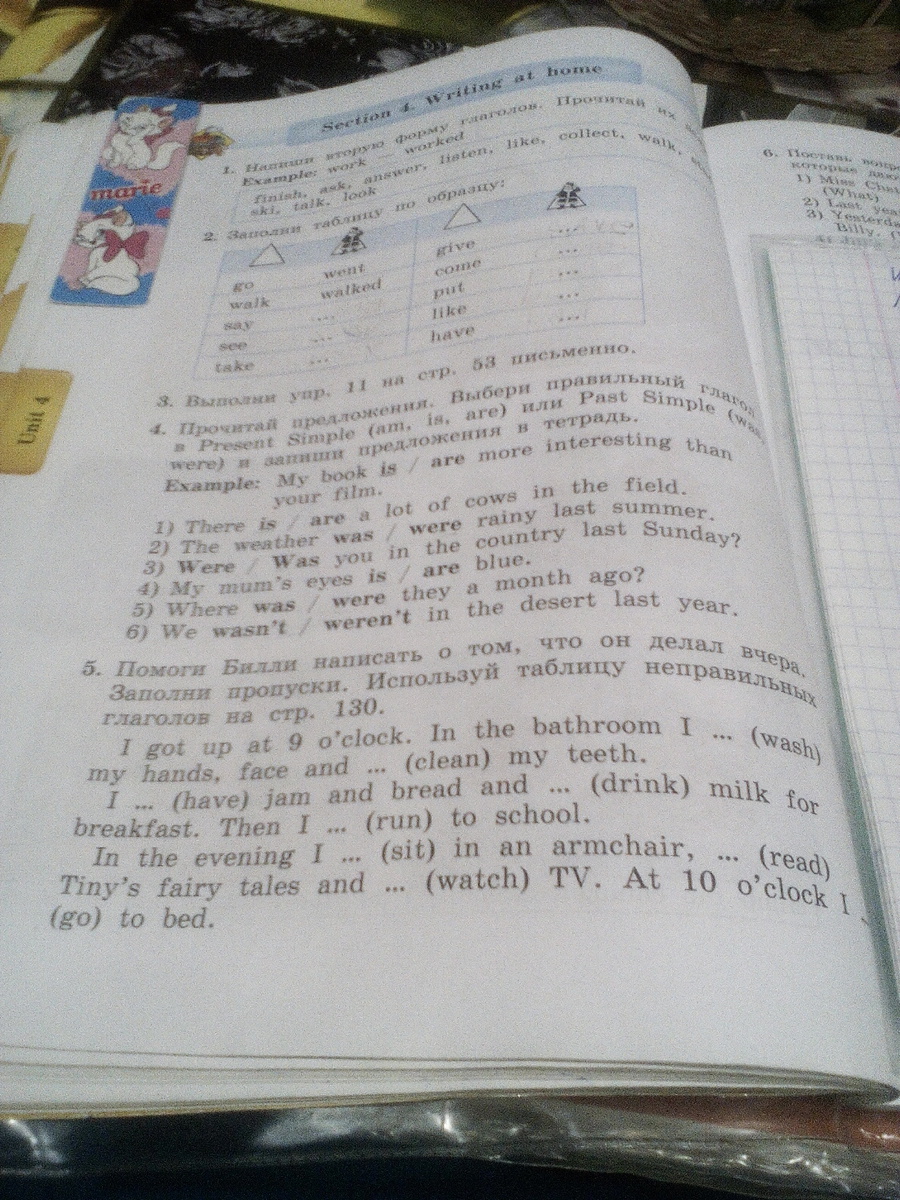 marie
Unit 4
Section 4. Writing at home
1. Напиши вторую форму глаголов. Прочитай их
Example: work — worked
finish, ask, answer, listen, like, collect, walk,
ski, talk, look
2. Заполни таблицу по образцу:
go went give ...
walk walked come ...
say ... put ...
see ... like ...
take ... have ...
3. Выполни упр. 11 на стр. 53 письменно.
4. Прочитай предложения. Выбери правильный глагол
в Present Simple (am, is, are) или Past Simple (was,
were) и запиши предложения в тетрадь.
Example: My book is / are more interesting than
your film.
1) There is / are a lot of cows in the field.
2) The weather was / were rainy last summer.
3) Were / Was you in the country last Sunday?
4) My mum's eyes is / are blue.
5) Where was / were they a month ago?
6) We wasn't / weren't in the desert last year.
5. Помоги Билли написать о том, что он делал вчера.
Заполни пропуски. Используй таблицу неправильных
глаголов на стр. 130.
I got up at 9 o'clock. In the bathroom I ... (wash)
my hands, face and ... (clean) my teeth.
I ... (have) jam and bread and ... (drink) milk for
breakfast. Then I ... (run) to school.
In the evening I ... (sit) in an armchair, ... (read)
Tiny's fairy tales and ... (watch) TV. At 10 o'clock I
(go) to bed.
6. Поставь
которые
1) Miss
(What)
2) Last
3)
Billy,